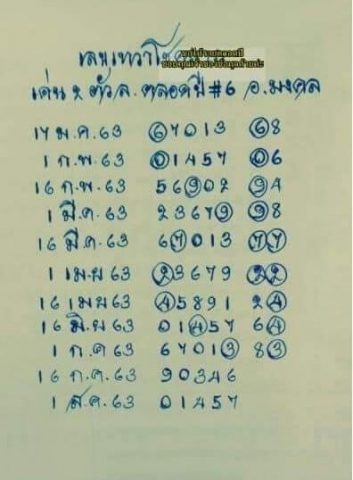 เลขเทวาโ
เด่น 2 ตัว ล. ตลอดปี #6 อ.มงคล
17 ม.ค. 63 67013 68
1 ก.พ. 63 01457 06
16 ก.พ. 63 56902 94
1 มี.ค. 63 23679 98
16 มี.ค. 63 67013 77
1 เมษ 63 23679 22
16 เมษ 63 45891 24
16 มิ.ย 63 01457 64
1 ก.ค 63 67013 83
16 ก.ค. 63 90346
1 ส.ค. 63 01457